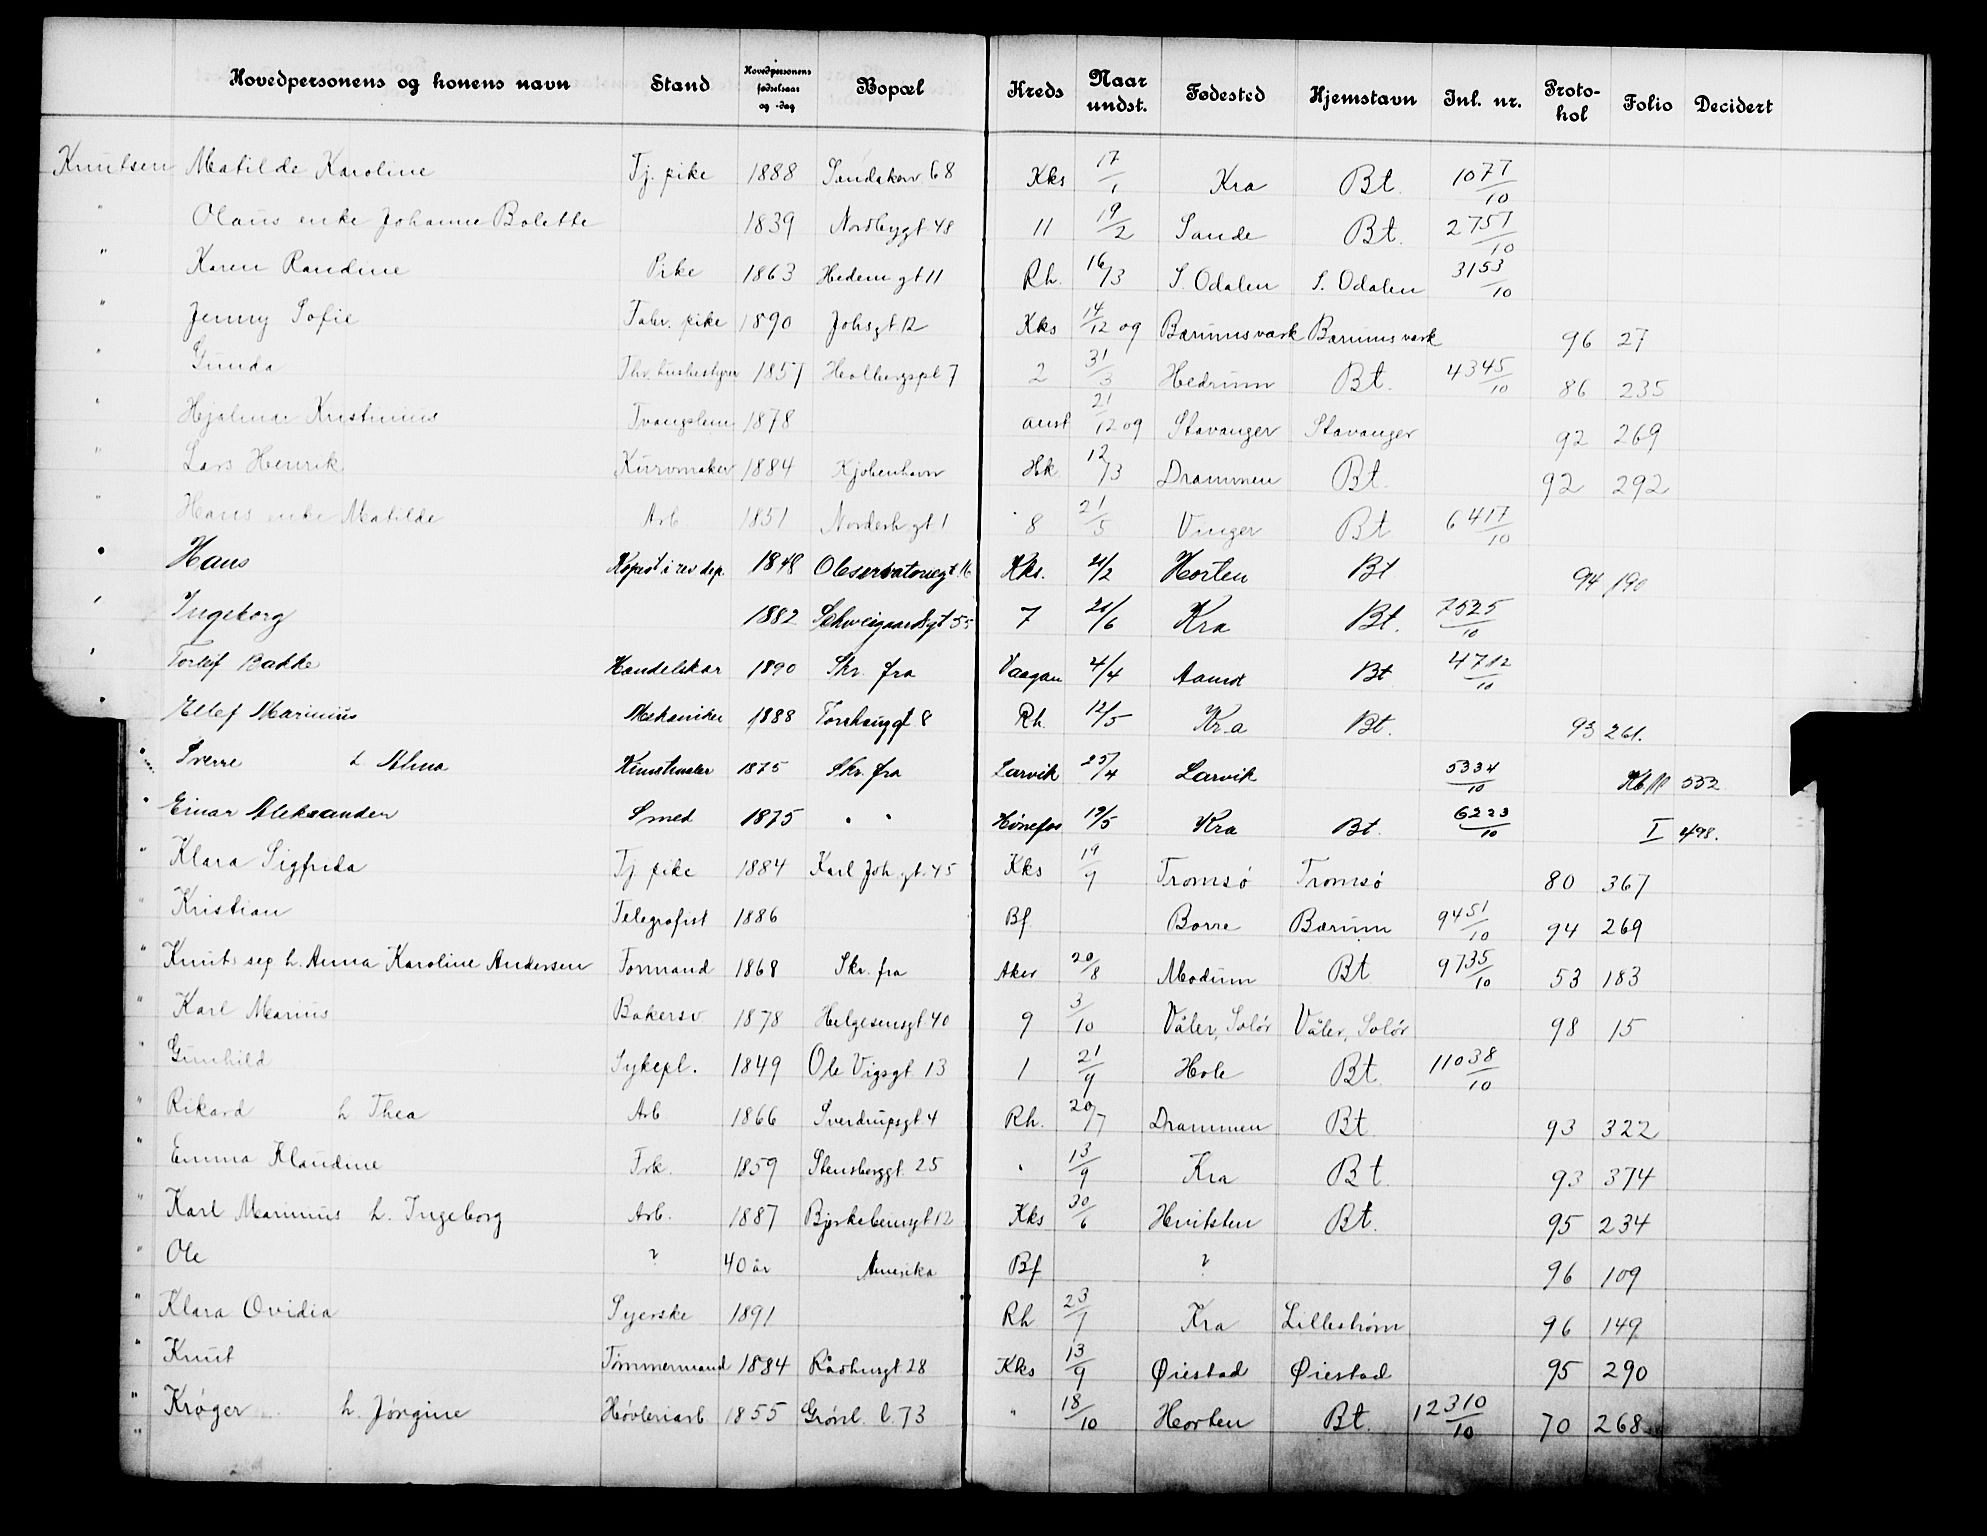 Hovedpersonens og konens navn Stand Hovedpersonens fødselsaar og -dag Bopæl Kreds Naar undst. Fødested Hjemstavn Inl. nr. Proto-kol Folio Decidert
Knutsen Matilde Karoline Tj. pike 1888 Sandakerv 68 Kks 17/1 Kra Bt. 1077/10
" Olaus enke Johanne Bolette 1839 Nordbygt 48 11 19/2 Sande Bt. 2757/10
" Karen Randine Pike 1863 Hedem gt 11 Rh. 16/3 S. Odalen S. Odalen 3153/10
" Jenny Sofie Fabr. pike 1890 Johsgt 12 Kks 14/12 09 Bærumsværk Bærumsværk 96 27
" Gunda Fhv. husbestyrer 1857 Holbergspl 7 2 31/3 Hedrum Bt. 4345/10 86 235
" Hjalmar Kristinius Tvangslem 1878 anst 21/12 09 Stavanger Stavanger 92 269
" Lars Henrik Kurvmaker 1884 Kjøbenhavn Hk 12/3 Drammen Bt. 92 292
" Hans enke Matilde Arb. 1851 Norderh gt 1 8 21/5 Vinger Bt 6417/10
" Hans Kopist i rev dep 1848 Observatoriegt 16 Kks. 21/2 Horten Bt 94 190
" Ingeborg 1882 Schweigaardsgt 55 7 21/6 Kra Bt. 7525/10
" Torleif Bakke Handelskar 1890 Skr. fra Vaagan 21/4 Aamot Bt 4712/10
" Ellef Marinius Mekaniker 1888 Torshauggt 8 Rh. 12/5 Kra Bt. 93 261.
" Sverre h Alma Kunstmaler 1875 Skr. fra Larvik 25/4 Larvik 5334/10 532
" Einar Aleksander Smed 1875 " " Hønefos 19/5 Kra Bt. 6223/10 I 498.
" Klara Sigfrida Tj pike 1884 Karl Joh gt. 45 Kks 19/9 Tromsø Tromsø 80 367
" Kristian Telegrafist 1886 Bf Borre Bærum 9451/10 94 269
" Knut sep h. Anna Karoline Andersen Formand 1868 Skr. fra Aker 20/8 Modum Bt 9735/10 53 183
" Karl Marius Bakersv 1878 Helgesensgt 40 9 3/10 Våler, Solør Våler, Solør 98 15
" Gunhild Sykepl. 1849 Ole Vigsgt 13 1 21/9 Hole Bt. 11038/10
" Rikard h Thea Arb 1866 Sverdrupsgt 4 Rh. 20/7 Drammen Bt. 93 322
" Emma Klaudine Frk. 1859 Stensberggt 25 " 13/9 Kra Bt. 93 374
" Karl Marinius h. Ingeborg Arb. 1887 Bjerkebeinsgt 12 Kks 30/6 Hvitsten Bt. 95 234
" Ole ? 40 år Amerika Bf ? 96 109
" Klara Ovidia Syerske 1891 Rh 23/1 Kra Lillestrøm 96 149
" Knut Tømmermand 1884 Rådhusgt 28 Kks 13/9 Øiestad Øiestad 95 290
" Krøger h. Jørgine Høvleriarb 1855 Grønl. l. 73 " 18/10 Horten Bt. 12310/10 70 268
"